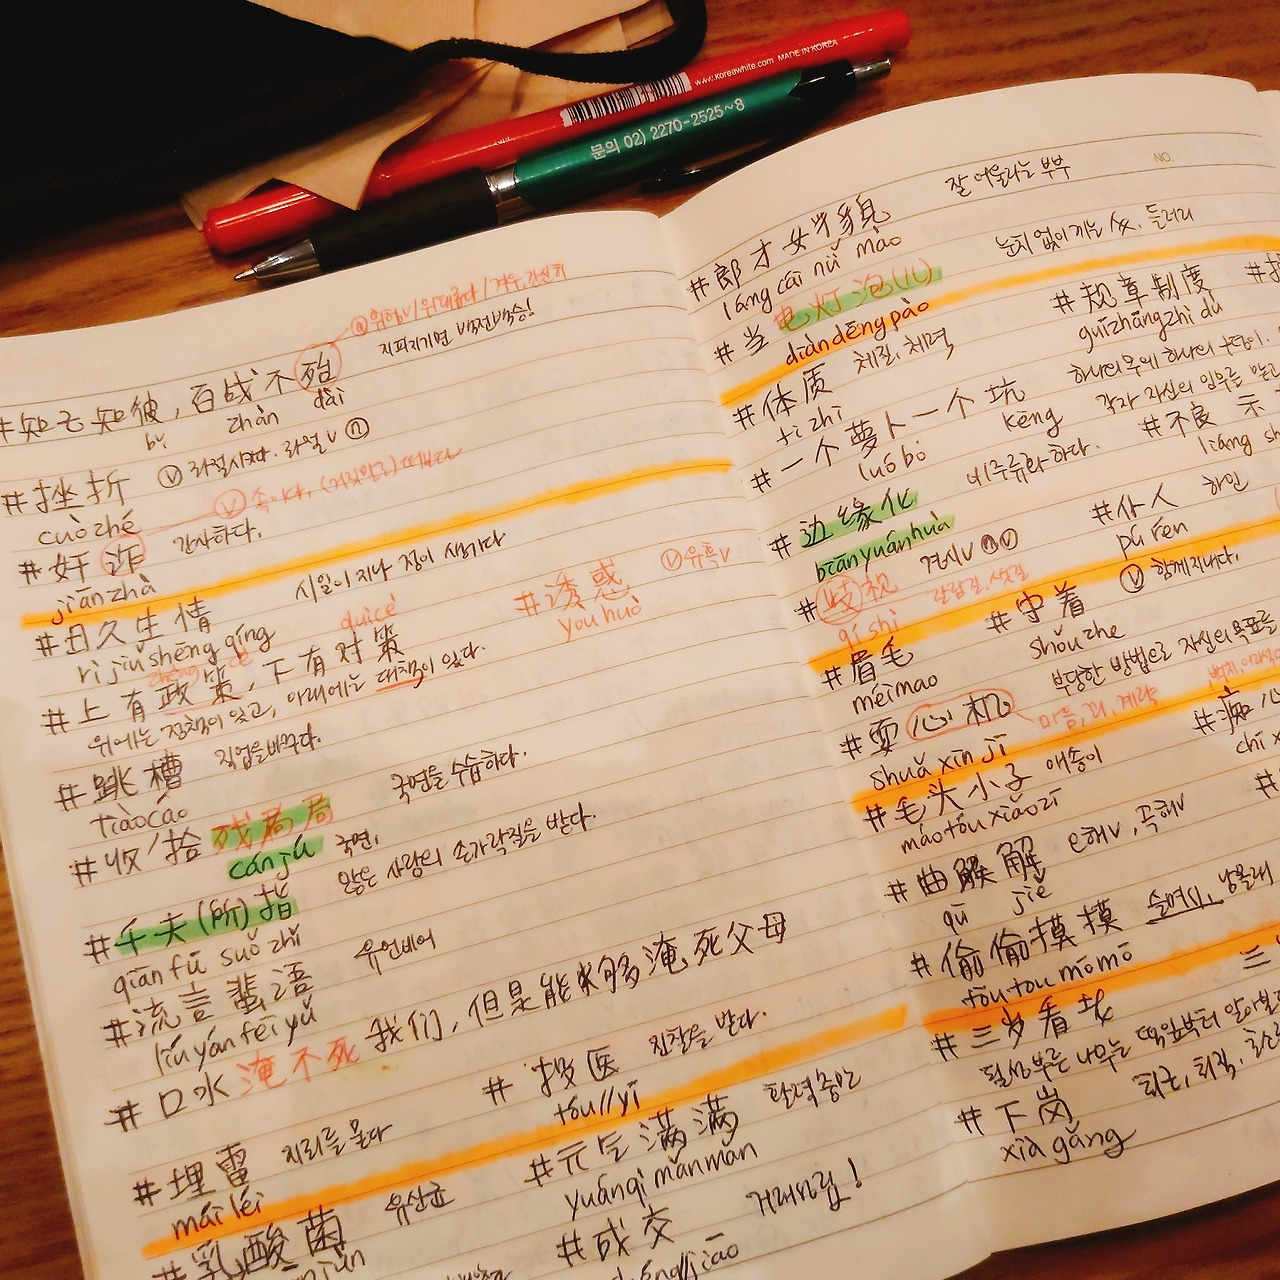 www.koreawhite.com MADE IN KOREA
문의 02) 2270-2525~8
지피지기면 백전백승!
#知己知彼, 百战不殆
bǐ zhàn dài
#挫折 ⓥ 좌절시키다. 좌절v ⓝ
cuòzhé
ⓥ 속이다.
#奸诈 간사하다.
jiānzhà
시일이 지나 정이 생기다
#日久生情
rì jiǔ shēng qíng
#诱惑 ⓥ 유혹v
yòuhuò
duìcè
zhèng cè
#上有政策, 下有对策
위에는 정책이 있고, 아래에는 대책이 있다.
#跳槽 직업을 바꾸다.
tiàocáo
#收/拾 残局 局 국면을 수습하다.
cánjú 국면.
#千夫(所)指 많은 사람의 손가락질을 받다.
qiān fū suǒ zhǐ
#流言蜚语 유언비어
liúyánfēiyǔ
#口水淹不死我们, 但是能够淹死父母
#投医 진찰을 받다.
tóu//yī
#埋雷 지뢰를 묻다
mái léi
#元气满满 활력충만
yuánqì mǎnmǎn
#乳酸菌 유산균
#成交 거래성립!
chéng//jiāo
NO.
잘 어울리는 부부
#郎才女貌
láng cái nǚ mào
눈치 없이 끼는 사. 들러리
#当电灯泡(儿)
diàndēngpào
#规章制度
guīzhāngzhìdù
#体质 체질, 체력
tǐ zhì
#一个萝卜一个坑
luóbo kēng
하나의 무에 하나의 구덩이.
각자 자신의 임무를 맡고
#不良 示
liáng sh
#边缘化 비주류화 하다.
biānyuánhuà
#仆人 하인
pú rén
#歧视 경시v ⓝⓥ
qí shì
#守着 ⓥ 함께 지내다.
shǒuzhe
#眉毛
méimao
부당한 방법으로 자신의 목표를
#耍心机 마음, 꾀, 계략
shuǎ xīn jī
#痴心
chī x
#毛头小子 애송이
máotóuxiǎozi
#曲解 解 오해v, 곡해v
qū jiě
#偷偷摸摸 슬며시, 남몰래
tōutoumōmō
#三岁看老
될성부른 나무는 떡잎부터 알아본
#下岗 퇴근, 퇴직,
xiàgǎng